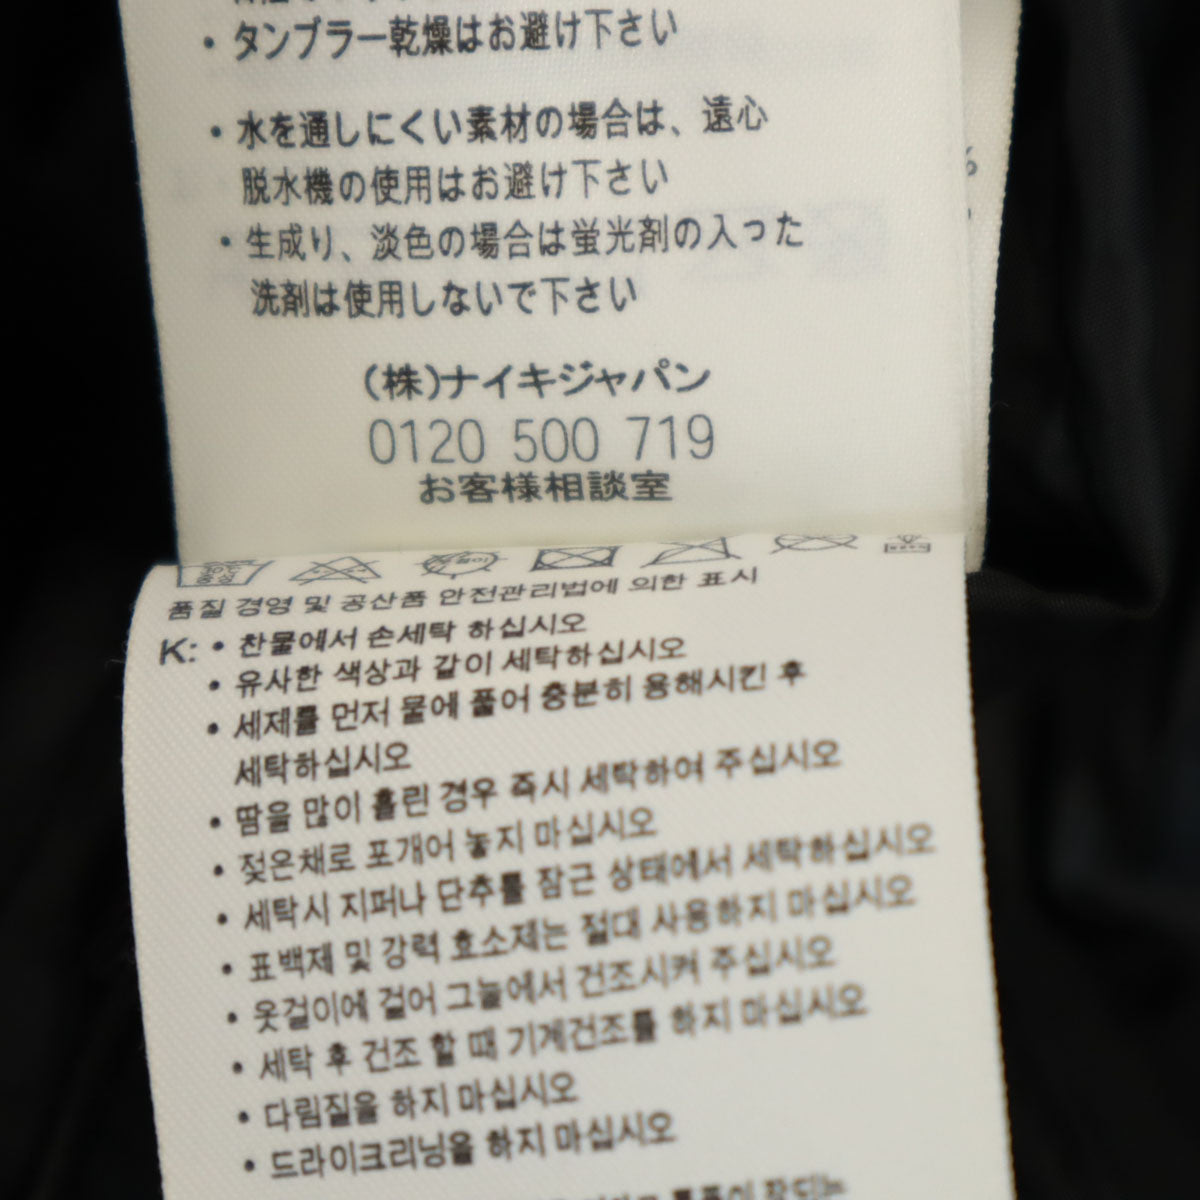 ・タンブラー乾燥はお避け下さい
・水を通しにくい素材の場合は、遠心
脱水機の使用はお避け下さい
・生成り、淡色の場合は蛍光剤の入った
洗剤は使用しないで下さい
(株)ナイキジャパン
0120 500 719
お客様相談室
품질 경영 및 공산품 안전관리법에 의한 표시
K: • 찬물에서 손세탁 하십시오
• 유사한 색상과 같이 세탁하십시오
• 세제를 먼저 물에 풀어 충분히 용해시킨 후
세탁하십시오
• 땀을 많이 흘린 경우 즉시 세탁하여 주십시오
• 젖은채로 포개어 놓지 마십시오
• 세탁시 지퍼나 단추를 잠근 상태에서 세탁하십시오
• 표백제 및 강력 효소제는 절대 사용하지 마십시오
• 옷걸이에 걸어 그늘에서 건조시켜 주십시오
• 세탁 후 건조 할 때 기계건조를 하지 마십시오
• 다림질을 하지 마십시오
• 드라이크리닝을 하지 마십시오